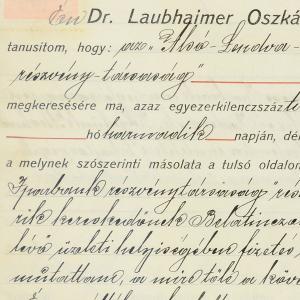 Én Dr. Laubhaimer Oszká
tanusítom, hogy: az „Alsó-Lendva-
részvény-társaság"
megkeresésére ma, azaz egyezerkilenczszázt
hó harmadik napján, dé
a melynek szószerinti másolata a tulsó oldalon
Iparbank részvénytársaság" rés
rik kereskedőnek Belatincza
lévő üzleti helyiségében fizetés
mutattam, a mire tőle a köv